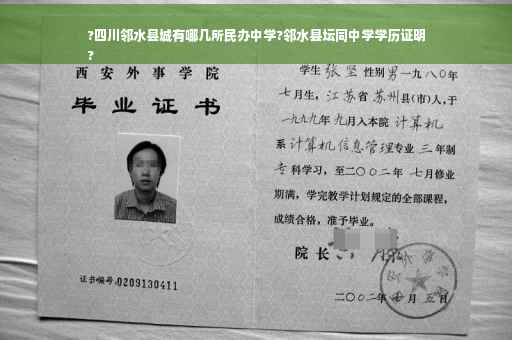 ?四川邻水县城有哪几所民办中学?邻水县坛同中学学历证明
?
西安外事学院
毕业证书
证书编号:0209130411
学生 张坚 性别 男 一九八〇年
七月生，江苏省 苏州县(市)人,于
一九九九年 九月入本院 计算机
系 计算机信息管理专业 三 年制
专科学习，至二〇〇二年 七月修业
期满，学完教学计划规定的全部课程，
成绩合格，准予毕业。
院长
二〇〇二年 七 月 五 日